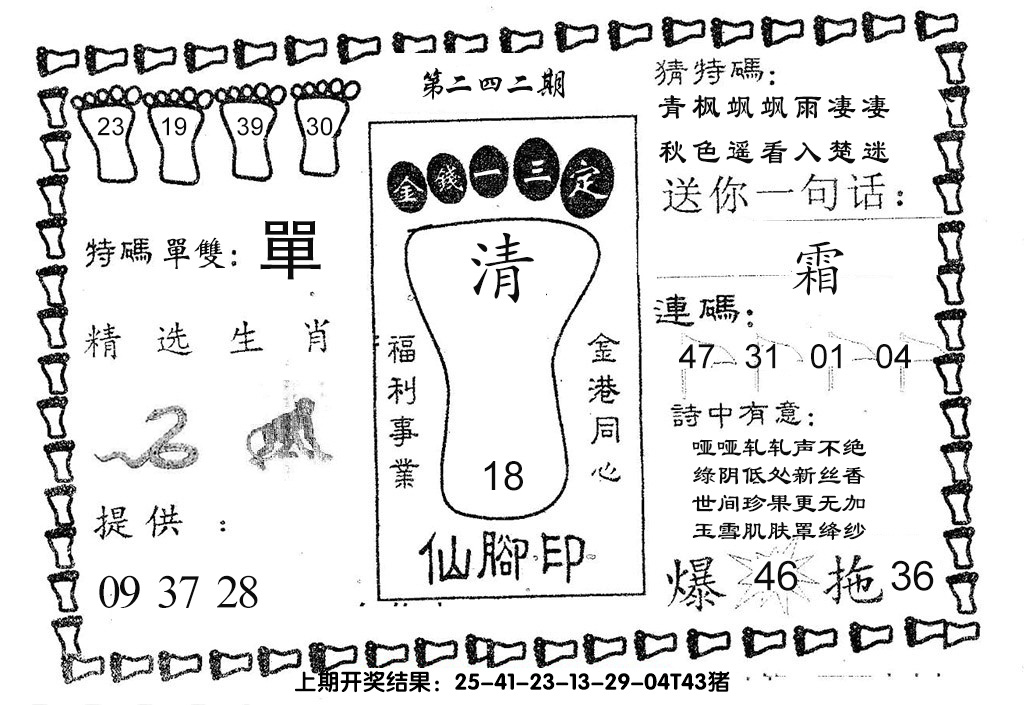 第二四二期
23 19 39 30
特碼單雙：單
精选生肖
提供：
09 37 28
金錢一三定
清
福利事業
金港同心
18
仙腳印
猜特碼：
青枫飒飒雨凄凄
秋色遥看入楚迷
送你一句话：
霜
連碼：
47 31 01 04
詩中有意：
哑哑轧轧声不绝
绿阴低处新丝香
世间珍果更无加
玉雪肌肤罩绛纱
爆 46 拖 36
上期开奖结果：25-41-23-13-29-04T43猪